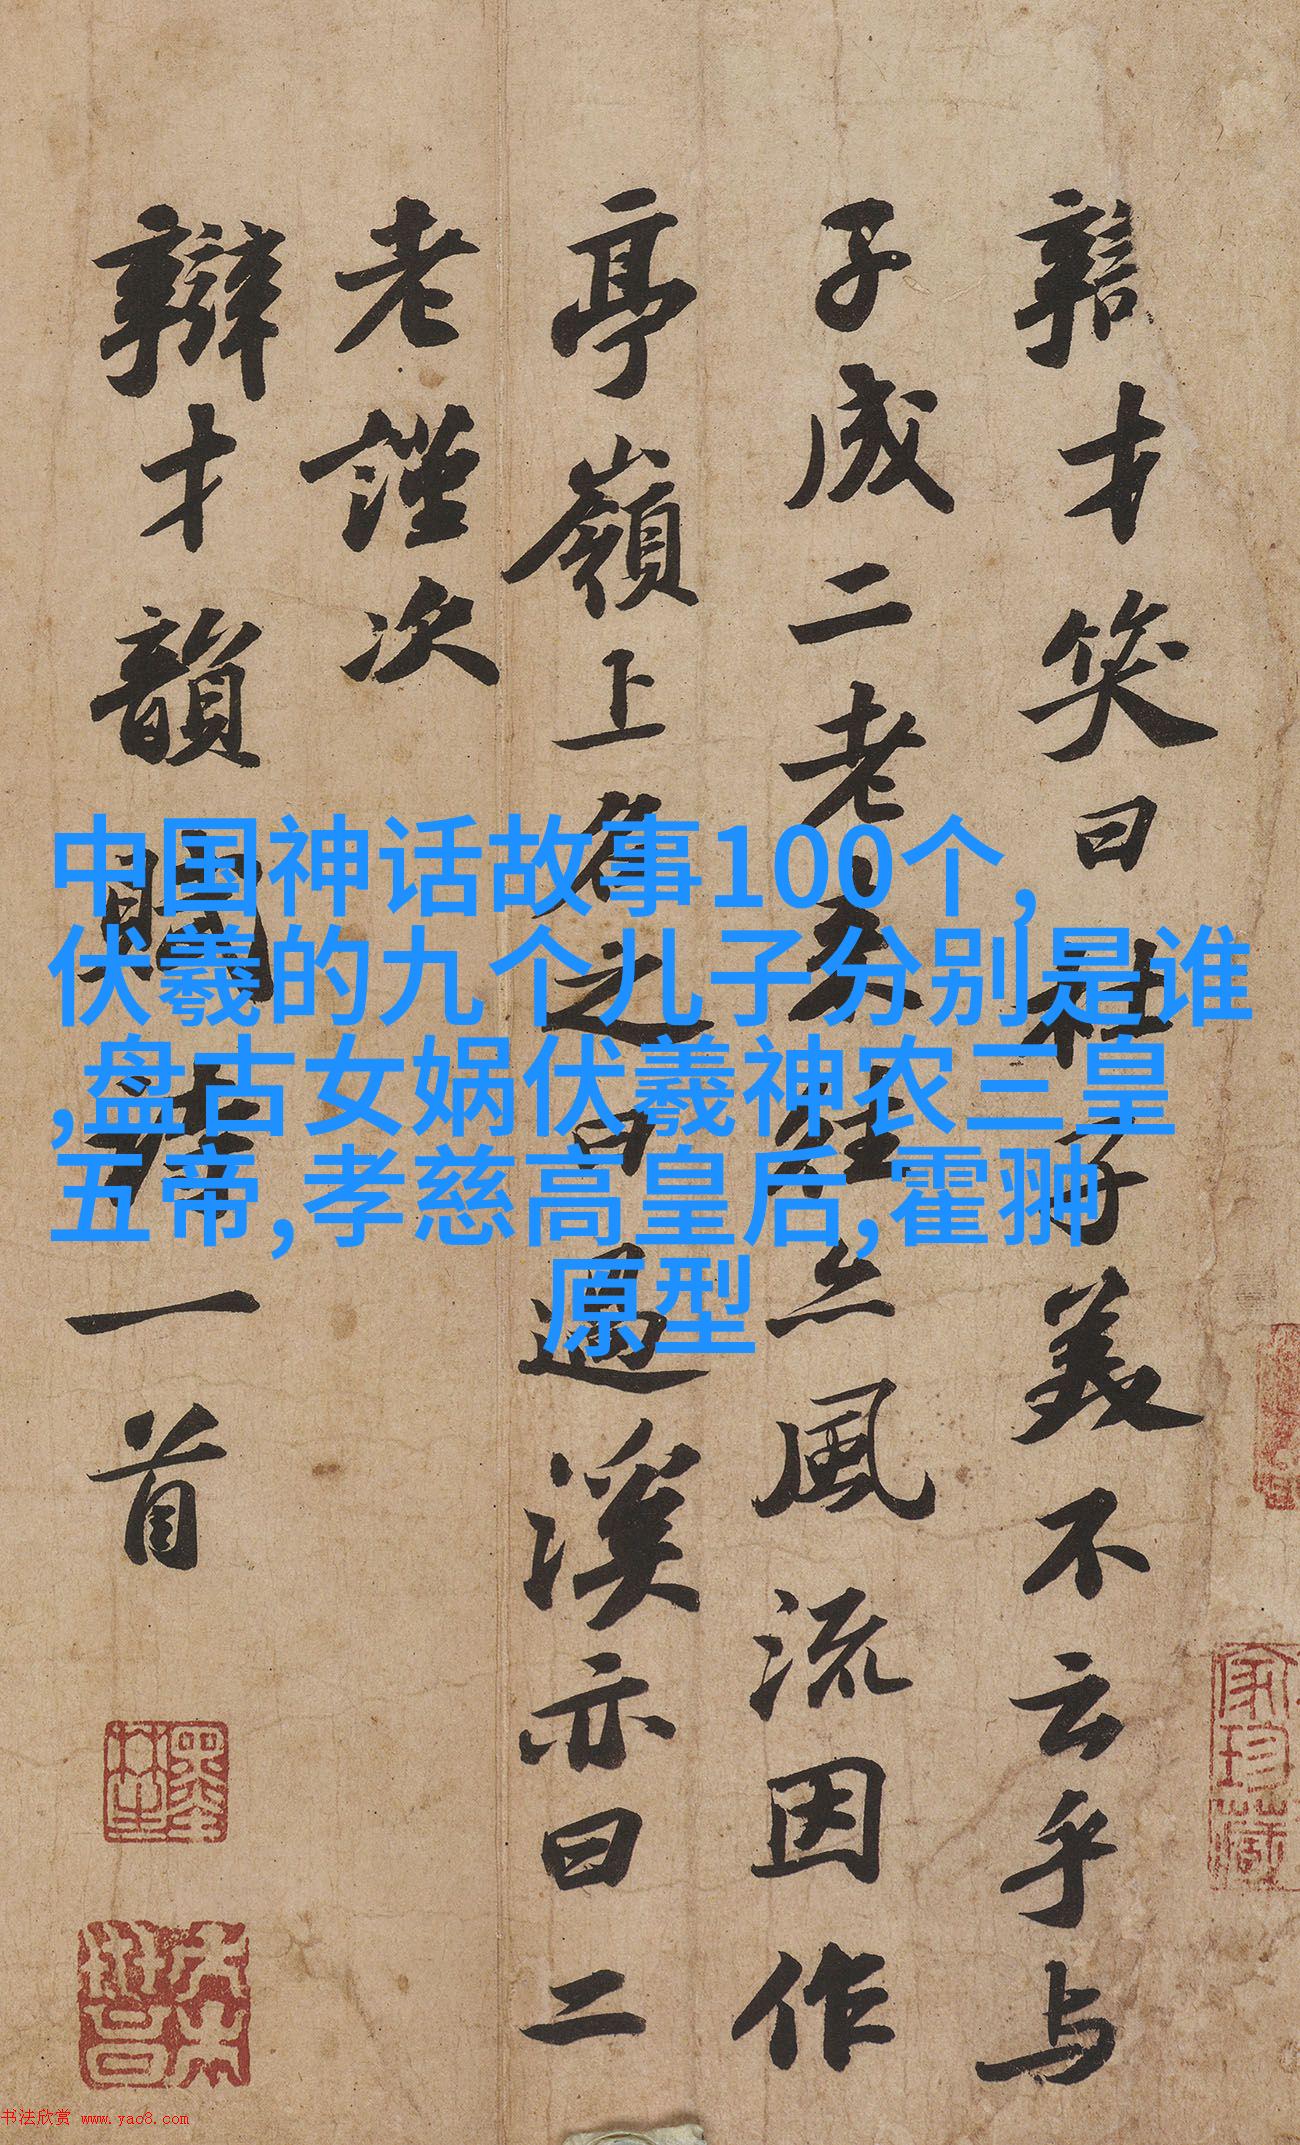 辯才笑曰杜子美不云乎与
子成二老来往亦風流因作
亭嶺上名之曰過溪亦曰二
老謹次
辯才韻賦詩一首
中国神话故事100个,
伏羲的九个儿子分别是谁
,盘古女娲伏羲神农三皇
五帝,孝慈高皇后,霍翀
原型
家珍藏
书法欣赏 www.yac8.com